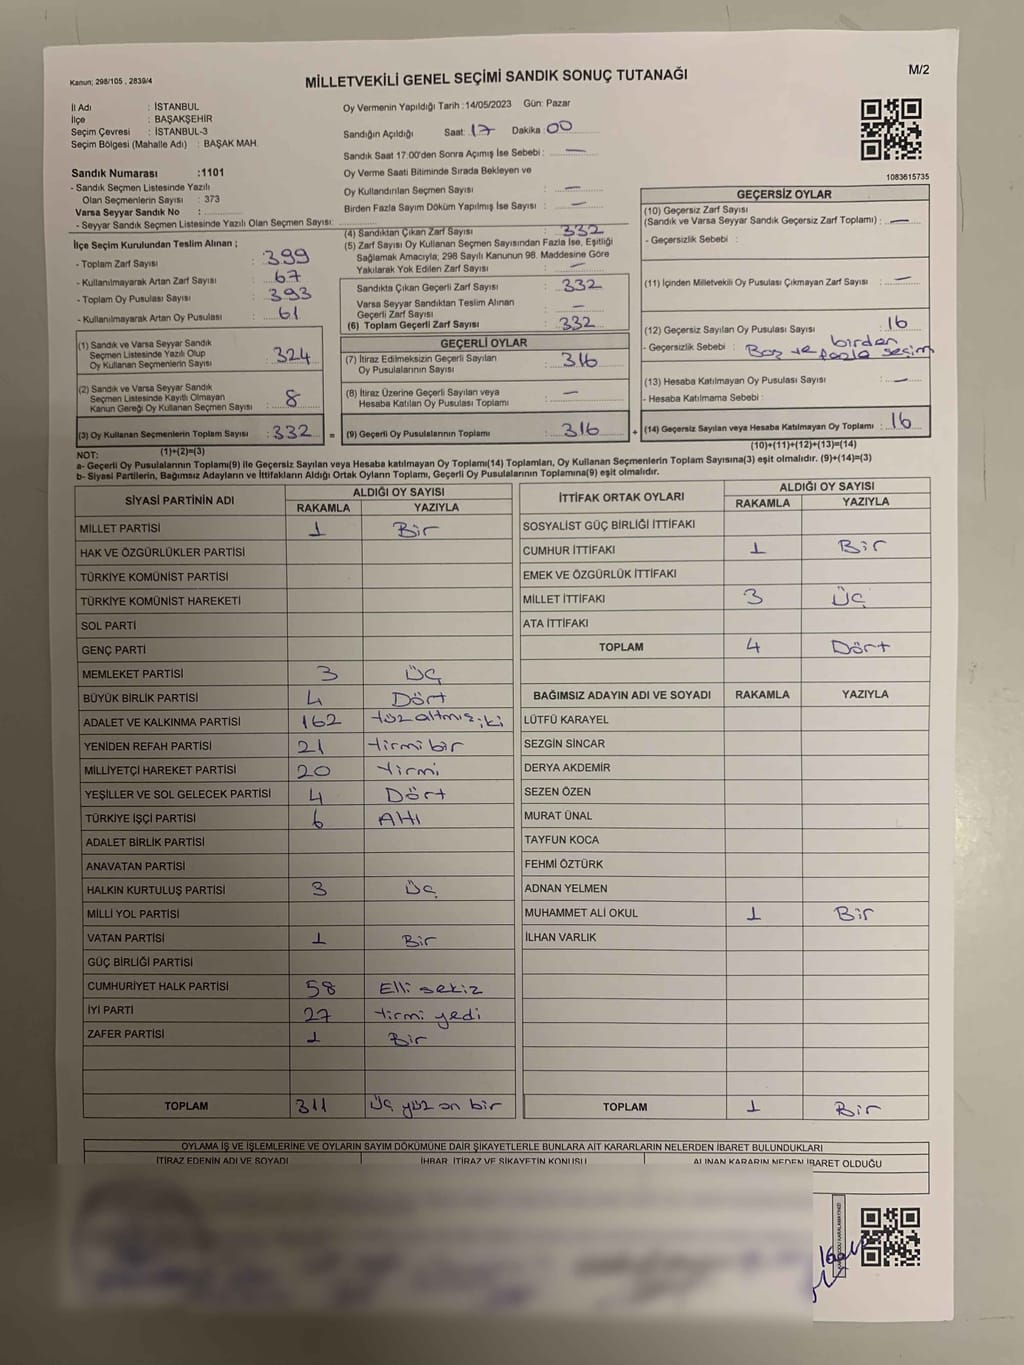 Kanun; 298/105 , 2839/4
MİLLETVEKİLİ GENEL SEÇİMİ SANDIK SONUÇ TUTANAĞI
M/2
İl Adı : İSTANBUL
İlçe : BAŞAKŞEHİR
Seçim Çevresi : İSTANBUL-3
Seçim Bölgesi (Mahalle Adı) : BAŞAK MAH.
Oy Vermenin Yapıldığı Tarih : 14/05/2023 Gün: Pazar
Sandığın Açıldığı Saat: 17 Dakika : 00
Sandık Saat 17:00'den Sonra Açımış İse Sebebi : —
Oy Verme Saati Bitiminde Sırada Bekleyen ve
Oy Kullandırılan Seçmen Sayısı : —
Birden Fazla Sayım Döküm Yapılmış İse Sayısı : —
1083615735
Sandık Numarası :1101
- Sandık Seçmen Listesinde Yazılı
Olan Seçmenlerin Sayısı : 373
Varsa Seyyar Sandık No :
- Seyyar Sandıktan Seçmen Listesinde Yazılı Olan Seçmen Sayısı:
İlçe Seçim Kurulundan Teslim Alınan ;
- Toplam Zarf Sayısı : 399
- Kullanılmayarak Artan Zarf Sayısı : 67
- Toplam Oy Pusulası Sayısı : 393
- Kullanılmayarak Artan Oy Pusulası : 61
(1) Sandık ve Varsa Seyyar Sandık
Seçmen Listesinde Yazılı Olup
Oy Kullanan Seçmenlerin Sayısı : 324
(2) Sandık ve Varsa Seyyar Sandık
Seçmen Listesinde Kayıtlı Olmayan
Kanun Gereği Oy Kullanan Seçmen Sayısı : 8
(3) Oy Kullanan Seçmenlerin Toplam Sayısı : 332 =
(1)+(2)=(3)
(4) Sandıktan Çıkan Zarf Sayısı : 332
(5) Zarf Sayısı Oy Kullanan Seçmen Sayısından Fazla İse, Eşitliği
Sağlamak Amacıyla, 298 Sayılı Kanunun 98. Maddesine Göre
Yakılarak Yok Edilen Zarf Sayısı : —
Sandıkta Çıkan Geçerli Zarf Sayısı : 332
Varsa Seyyar Sandıktan Teslim Alınan
Geçerli Zarf Sayısı : —
(6) Toplam Geçerli Zarf Sayısı : 332
GEÇERLİ OYLAR
(7) İtiraz Edilmeksizin Geçerli Sayılan
Oy Pusulalarının Sayısı : 316
(8) İtiraz Üzerine Geçerli Sayılan veya
Hesaba Katılan Oy Pusulası Toplamı : —
(9) Geçerli Oy Pusulalarının Toplamı : 316 +
GEÇERSİZ OYLAR
(10) Geçersiz Zarf Sayısı
(Sandık ve Varsa Seyyar Sandık Geçersiz Zarf Toplamı) : —
- Geçersizlik Sebebi :
(11) İçinden Milletvekili Oy Pusulası Çıkmayan Zarf Sayısı : —
(12) Geçersiz Sayılan Oy Pusulası Sayısı : 16
- Geçersizlik Sebebi : Boş ve birden fazla seçim
(13) Hesaba Katılmayan Oy Pusulası Sayısı : —
- Hesaba Katılmama Sebebi :
(14) Geçersiz Sayılan veya Hesaba Katılmayan Oy Toplamı : 16
(10)+(11)+(12)+(13)=(14)
NOT:
a- Geçerli Oy Pusulalarının Toplamı(9) ile Geçersiz Sayılan veya Hesaba katılmayan Oy Toplamı(14) Toplamları, Oy Kullanan Seçmenlerin Toplam Sayısına(3) eşit olmalıdır. (9)+(14)=(3)
b- Siyasi Partilerin, Bağımsız Adayların ve İttifakların Aldığı Ortak Oyların Toplamı, Geçerli Oy Pusulalarının Toplamına(9) eşit olmalıdır.
SİYASİ PARTİNİN ADI ALDIĞI OY SAYISI
RAKAMLA YAZIYLA
MİLLET PARTİSİ 1 Bir
HAK VE ÖZGÜRLÜKLER PARTİSİ
TÜRKİYE KOMÜNİST PARTİSİ
TÜRKİYE KOMÜNİST HAREKETİ
SOL PARTİ
GENÇ PARTİ
MEMLEKET PARTİSİ 3 Üç
BÜYÜK BİRLİK PARTİSİ 4 Dört
ADALET VE KALKINMA PARTİSİ 162 Yüz altmış iki
YENİDEN REFAH PARTİSİ 21 Yirmi bir
MİLLİYETÇİ HAREKET PARTİSİ 20 Yirmi
YEŞİLLER VE SOL GELECEK PARTİSİ 4 Dört
TÜRKİYE İŞÇİ PARTİSİ 6 Altı
ADALET BİRLİK PARTİSİ
ANAVATAN PARTİSİ
HALKIN KURTULUŞ PARTİSİ 3 Üç
MİLLİ YOL PARTİSİ
VATAN PARTİSİ 1 Bir
GÜÇ BİRLİĞİ PARTİSİ
CUMHURİYET HALK PARTİSİ 58 Elli sekiz
İYİ PARTİ 27 Yirmi yedi
ZAFER PARTİSİ 1 Bir
TOPLAM 311 Üç yüz on bir
İTTİFAK ORTAK OYLARI ALDIĞI OY SAYISI
RAKAMLA YAZIYLA
SOSYALİST GÜÇ BİRLİĞİ İTTİFAKI
CUMHUR İTTİFAKI 1 Bir
EMEK VE ÖZGÜRLÜK İTTİFAKI
MİLLET İTTİFAKI 3 Üç
ATA İTTİFAKI
TOPLAM 4 Dört
BAĞIMSIZ ADAYIN ADI VE SOYADI RAKAMLA YAZIYLA
LÜTFÜ KARAYEL
SEZGİN SİNCAR
DERYA AKDEMİR
SEZEN ÖZEN
MURAT ÜNAL
TAYFUN KOCA
FEHMİ ÖZTÜRK
ADNAN YELMEN
MUHAMMET ALİ OKUL 1 Bir
İLHAN VARLIK
TOPLAM 1 Bir
OYLAMA İŞ VE İŞLEMLERİNE VE OYLARIN SAYIM DÖKÜMÜNE DAİR ŞİKAYETLERLE BUNLARA AİT KARARLARIN NELERDEN İBARET BULUNDUKLARI
İTİRAZ EDENİN ADI VE SOYADI İHBAR, İTİRAZ VE ŞİKAYETİN KONUSU ALINAN KARARIN NEDEN İBARET OLDUĞU